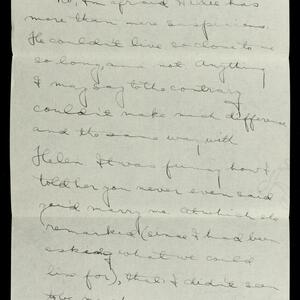 No, I'm afraid Willie has
more than mere suspicions.
He couldn't live so close to me
so long, and not. Anything
I may say to the contrary
couldn't make much difference
and the same way with
Helen. It was funny how I
told her you never even said
you'd marry me. At which she
remarked (since I had been
asking what we could
live for), that I didn't seem